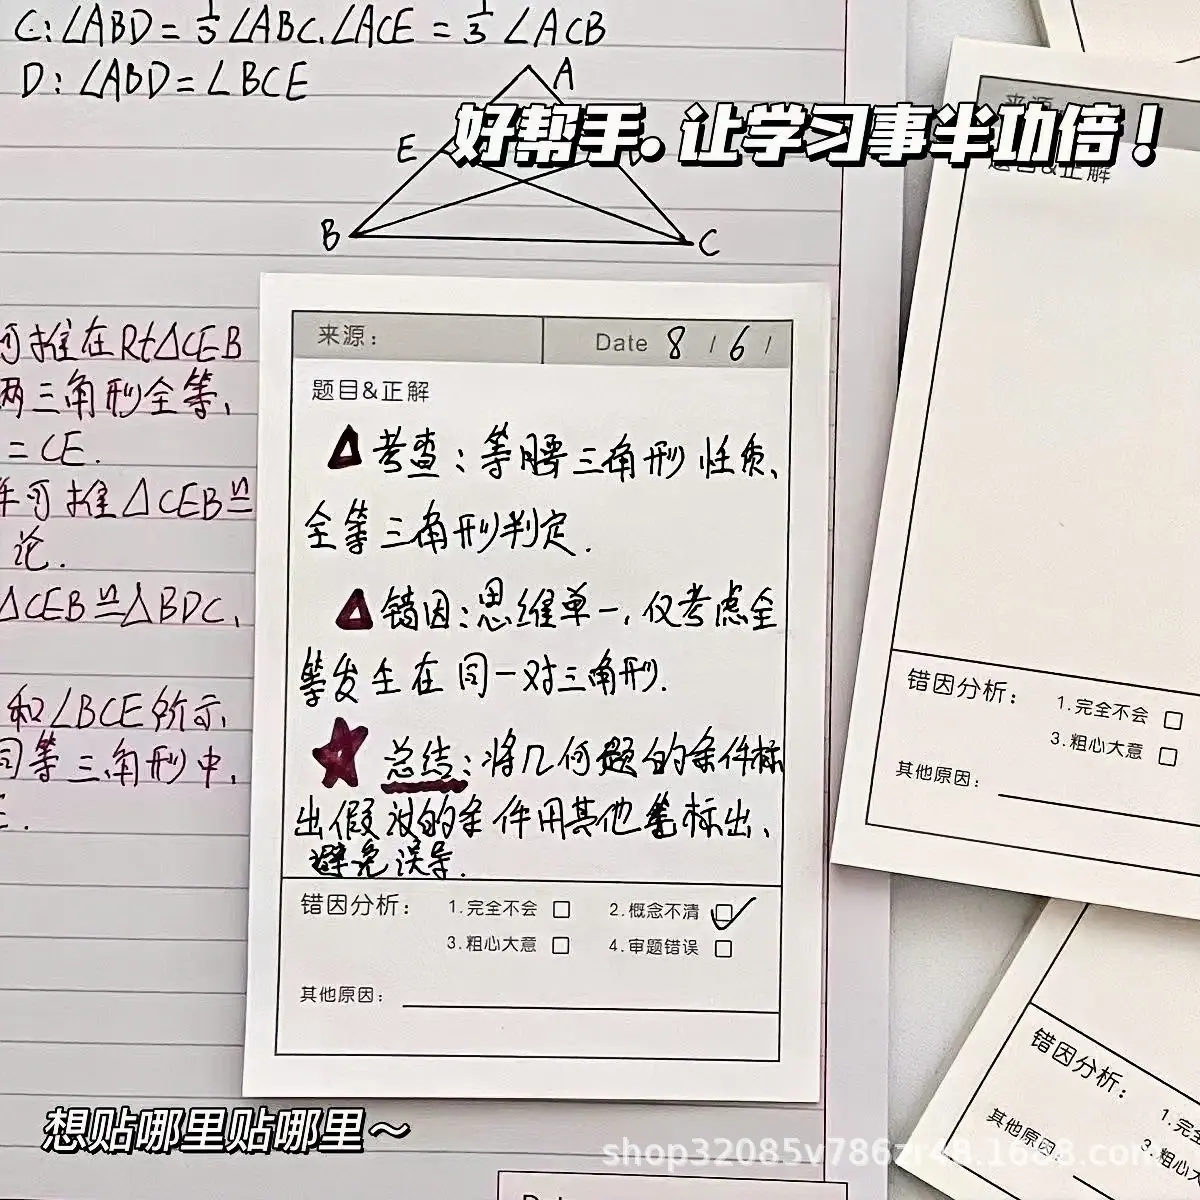 C:∠ABD=⅓∠ABC.∠ACE=⅓∠ACB
D:∠ABD=∠BCE
A
好帮手.让学习事半功倍!
E
B
C
可推在Rt△CEB
两三角形全等,
=CE.
件可推△CEB≌
论.
△CEB≌△BDC,
和∠BCE所示,
同等三角形中,
来源:
Date 8 / 6 /
题目&正解
△考查:等腰三角形性质、
全等三角形判定.
△错因:思维单一,仅考虑全
等发生在同一对三角形.
★总结:将几何题的条件标
出假设的条件用其他笔标出、
避免误导.
错因分析: 1.完全不会 □ 2.概念不清 □✓
3.粗心大意 □ 4.审题错误 □
其他原因:
来源
题目&正解
错因分析: 1.完全不会 □
3.粗心大意 □
其他原因:
错因分析:
1.完全
3.粗心大
其他原因
想贴哪里贴哪里~
shop32085v786zr48.1688.com
Date